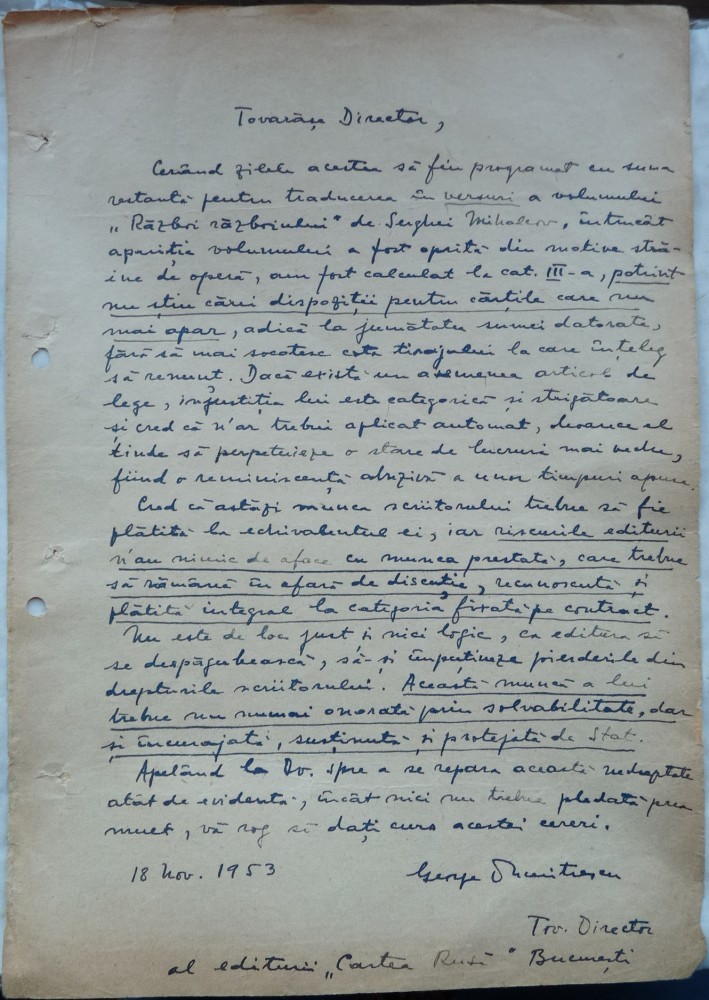 Tovarășe Director,
Cerând zilele acestea să fiu programat cu suma
restantă pentru traducerea în versuri a volumului
„Război războiului" de Serghei Mihalcov, întrucât
apariția volumului a fost oprită din motive stră-
ine de operă, am fost calculat la cat. III-a, potrivit
nu știu cărei dispoziții pentru cărțile care nu
mai apar, adică la jumătatea sumei datorate,
fără să mai socotesc cota tirajului la care înțeleg
să renunt. Dacă există un asemenea articol de
lege, injustiția lui este categorică și strigătoare
și cred că n'ar trebui aplicat automat, deoarece el
tinde să perpetuieze o stare de lucruri mai veche,
fiind o reminiscență abuzivă a unor timpuri apuse.
Cred că astăzi munca scriitorului trebue să fie
plătită la echivalentul ei, iar riscurile editurii
n'au nimic de aface cu munca prestată, care trebue
să rămână în afară de discuție, recunoscută și
plătită integral la categoria fixată pe contract.
Nu este de loc just și nici logic, ca editura să
se despăgubească, să-și împuțineze pierderile din
drepturile scriitorului. Această muncă a lui
trebue nu numai onorată prin solvabilitate, dar
și încurajată, susținută și protejată de Stat.
Apelând la Dv. spre a se repara această nedreptate
atât de evidentă, încât nici nu trebue pledată prea
mult, vă rog să dați curs acestei cereri.
18 Nov. 1953
George Dumitrescu
Tov. Director
al editurii „Cartea Rusă" București